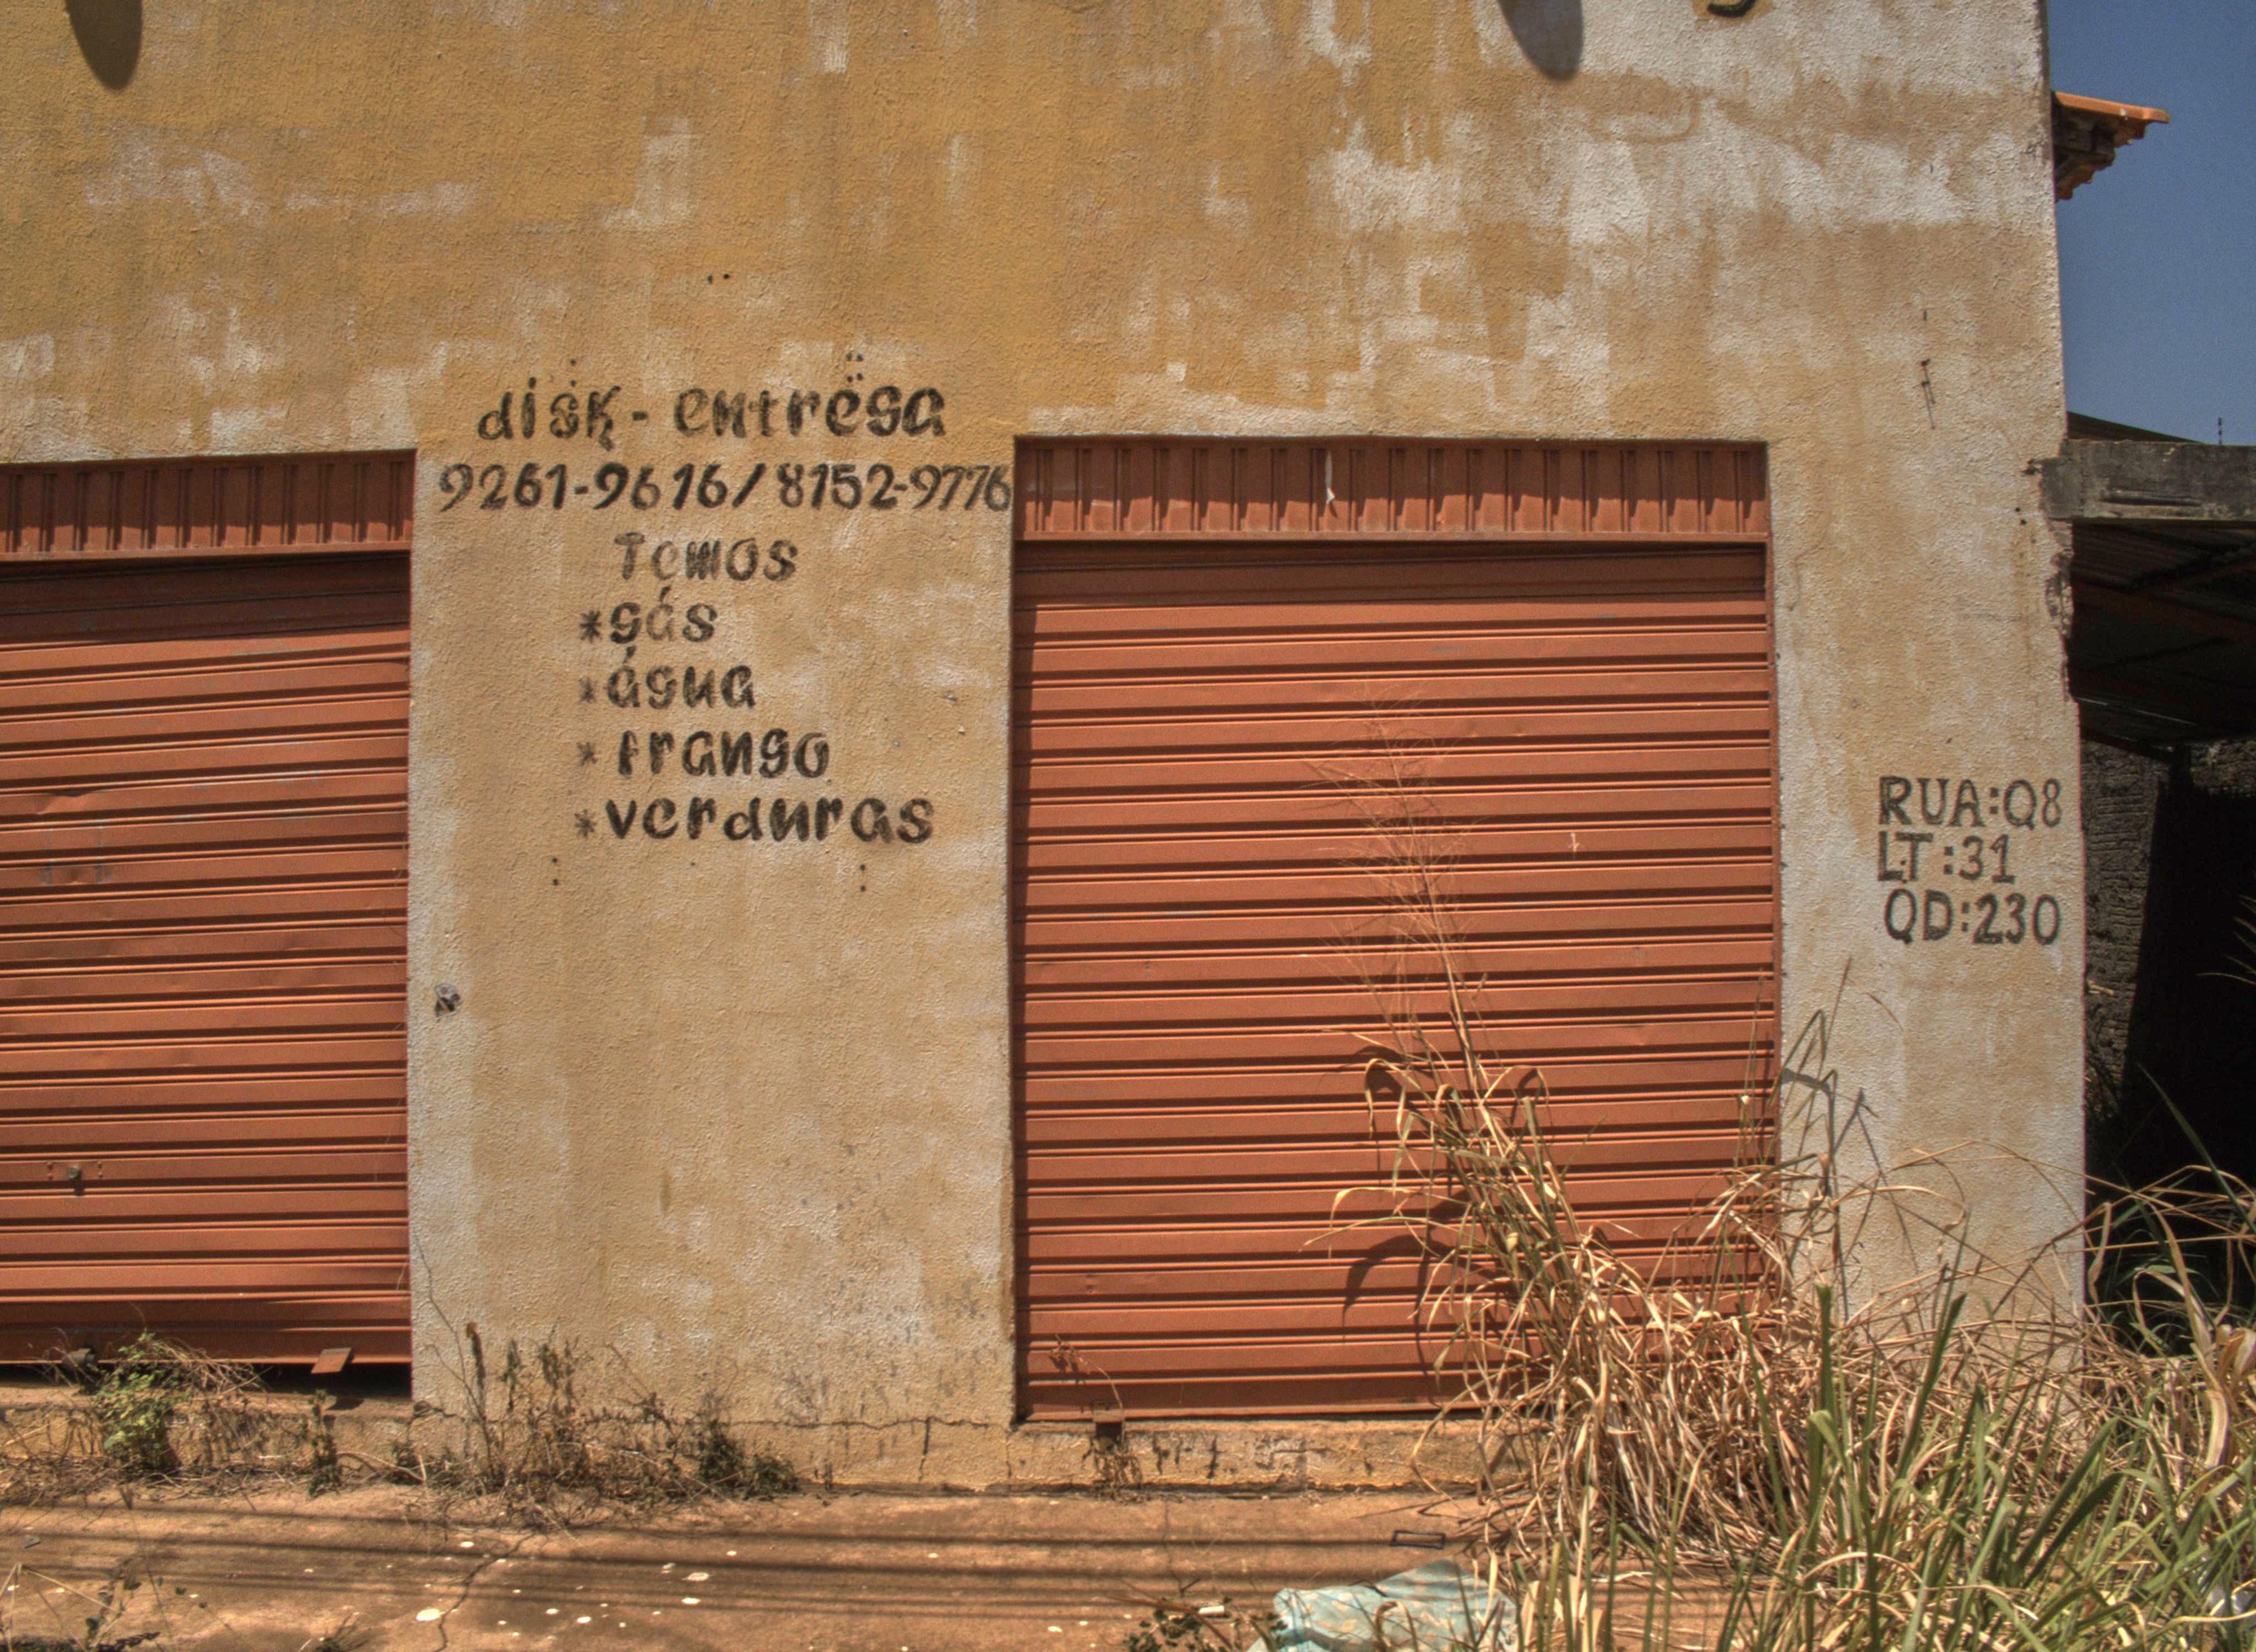 disk-entrega
9261-9616/8152-9776
Temos
*gás
*água
*frango
*verduras
RUA:Q8
LT:31
QD:230